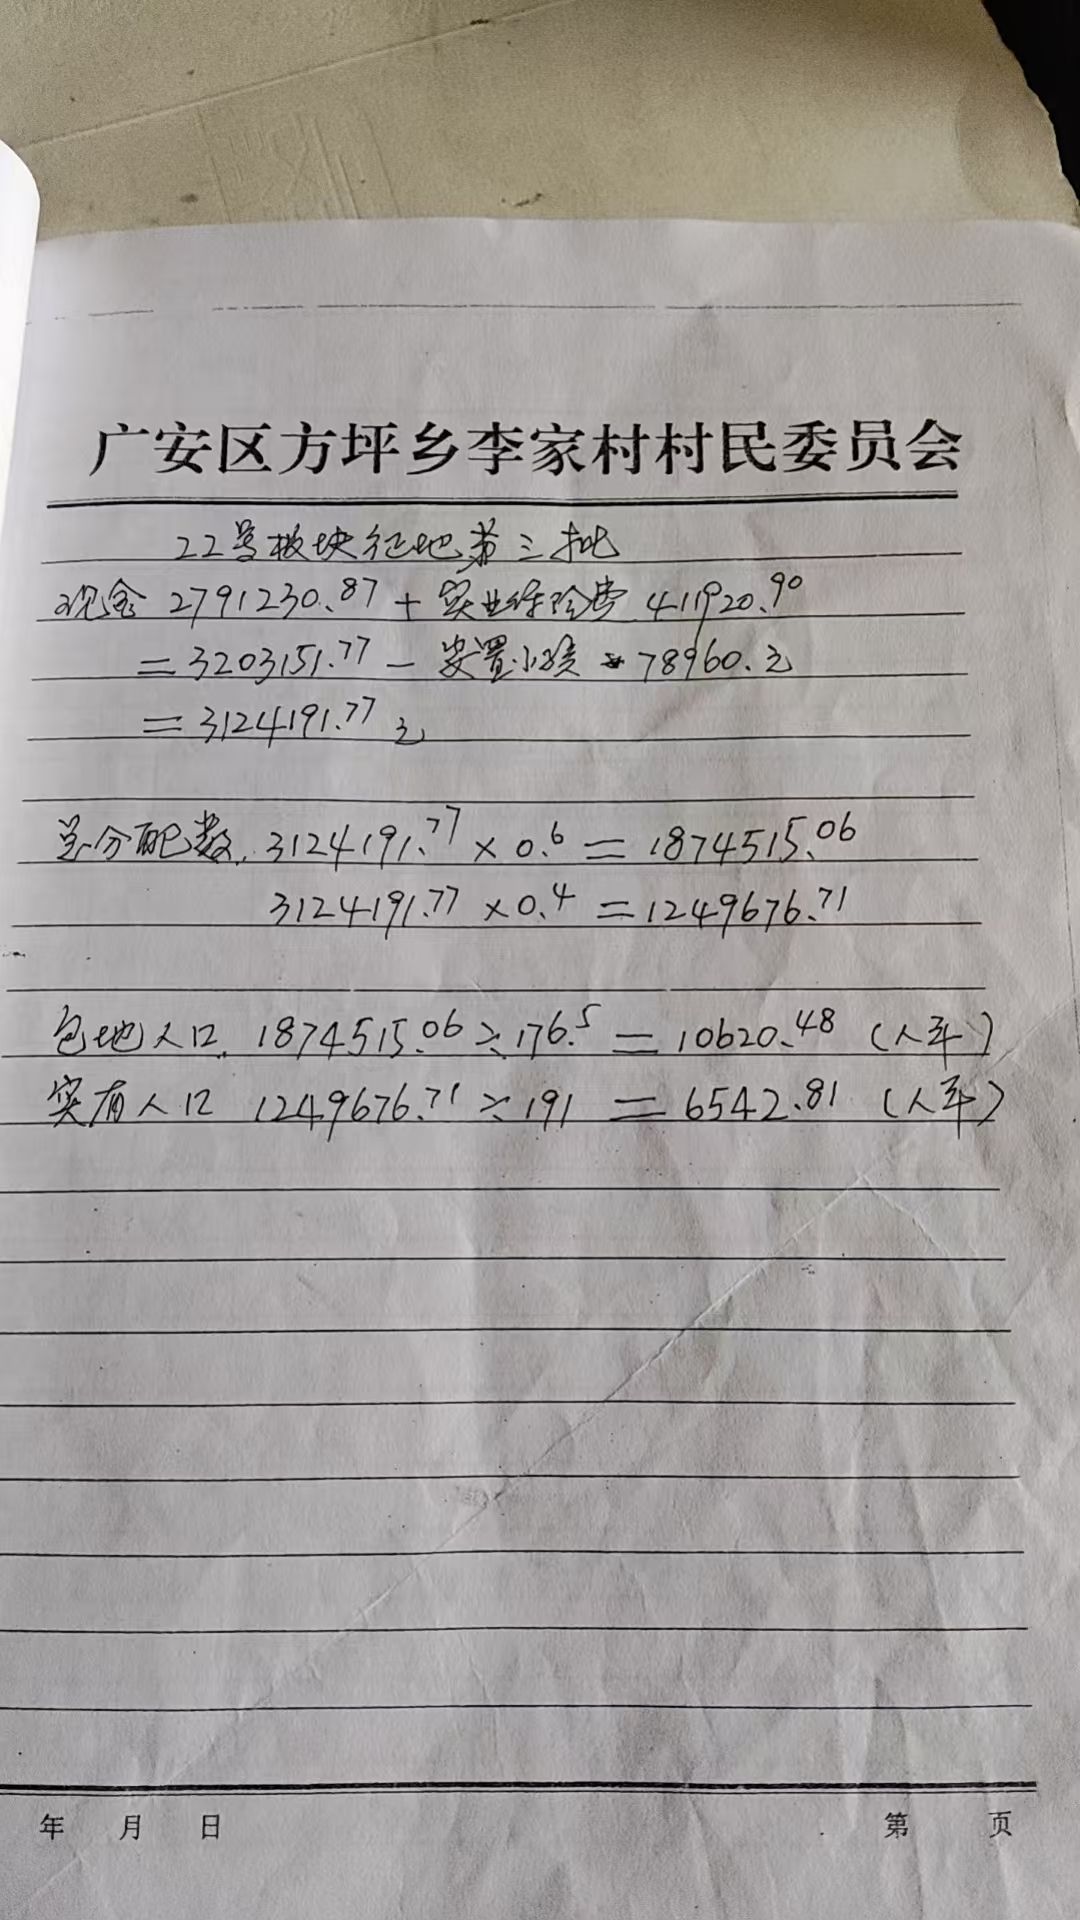 广安区方坪乡李家村村民委员会
22号板块征地第三批
现金 2791230.87 + 实业保险费 411920.90
= 3203151.77 - 安置小孩 78960.元
= 3124191.77 元
总分配数. 3124191.77 × 0.6 = 1874515.06
3124191.77 × 0.4 = 1249676.71
包地人口. 1874515.06 ÷ 176.5 = 10620.48 (人平)
实有人口 1249676.71 ÷ 191 = 6542.81 (人平)
年 月 日 第 页